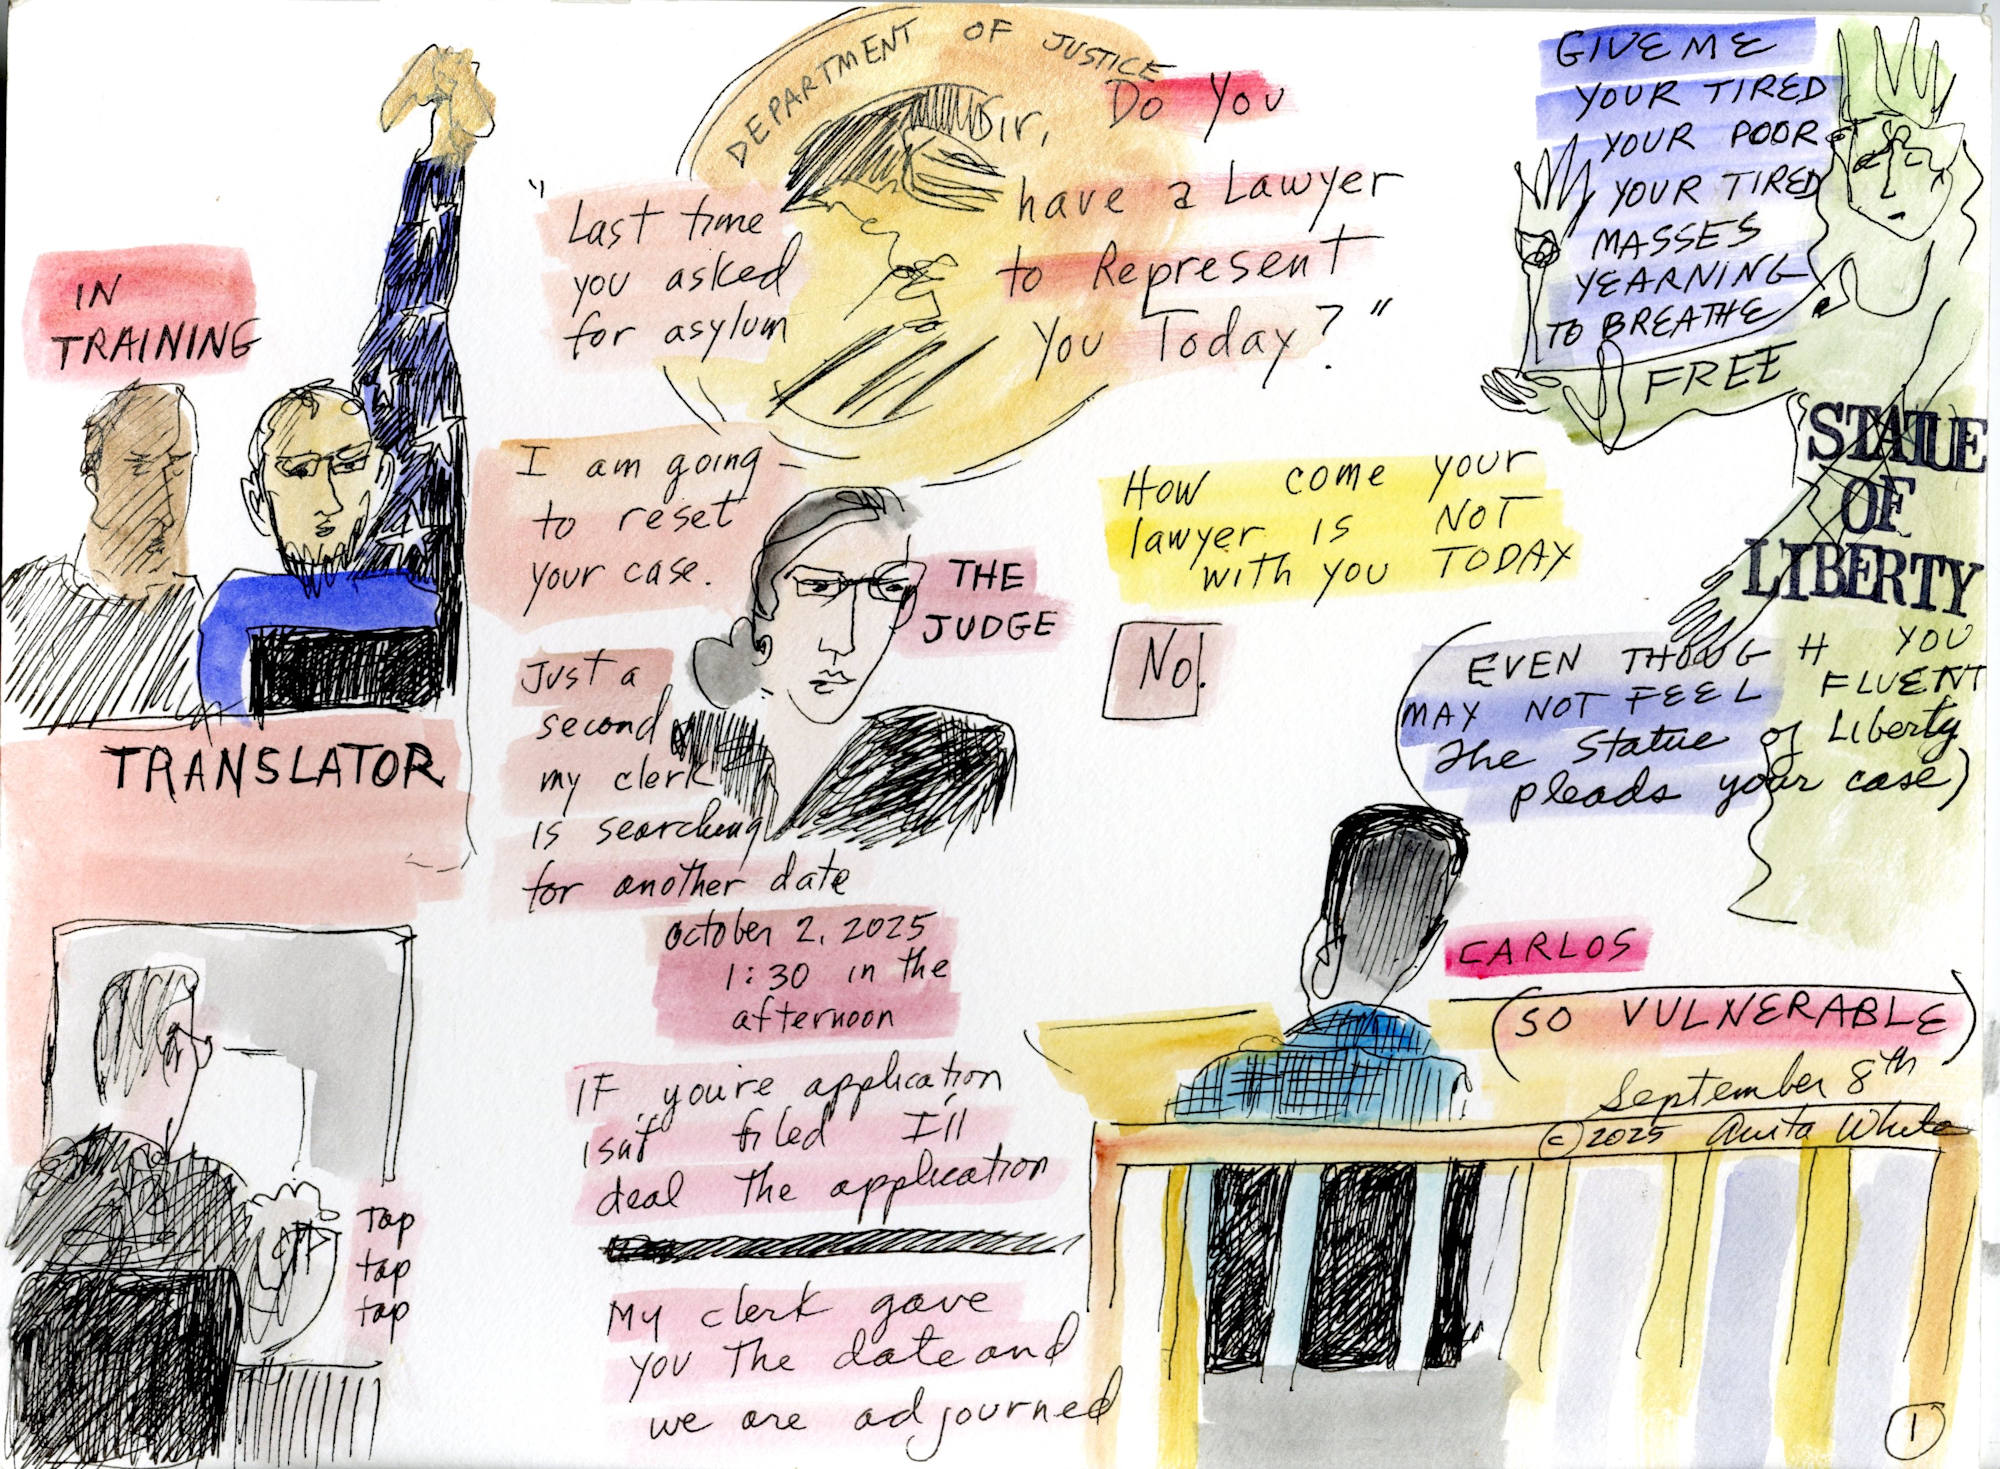 DEPARTMENT OF JUSTICE
IN
TRAINING
TRANSLATOR
"
Last time
you asked
for asylum
Sir, Do You
have a Lawyer
to Represent
You Today?"
I am going
to reset
your case.
THE
JUDGE
Just a
second
my clerk
is searching
for another date
October 2, 2025
1:30 in the
afternoon
IF you're application
isn't filed I'll
deal the application
My clerk gave
you the date and
we are adjourned
Tap
tap
tap
How come your
lawyer is NOT
with you TODAY
No!
GIVE ME
YOUR TIRED
YOUR POOR
YOUR TIRED
MASSES
YEARNING
TO BREATHE
FREE
STATUE
OF
LIBERTY
(EVEN THOUGH YOU
MAY NOT FEEL FLUENT
The Statue of Liberty
pleads your case)
CARLOS
(SO VULNERABLE)
September 8th
© 2025 Anita White
1